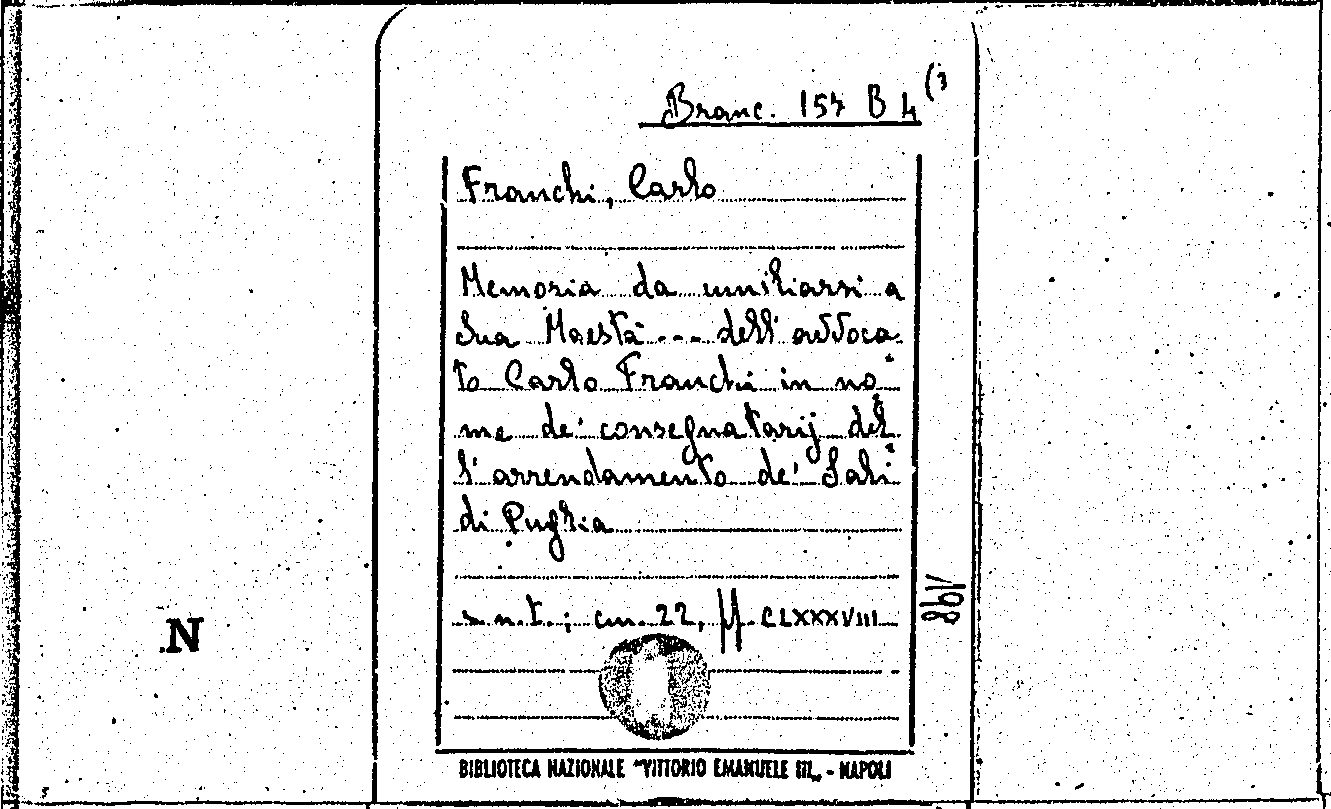 Branc. 154 B 4 (3
Franchi, Carlo
Memoria da umiliarsi a
Sua Maestà --- dell'avvoca=
to Carlo Franchi in no=
me de' consegnatarij del=
l'arrendamento de' Sali
di Puglia
s.n.t.; cm. 22, ff. CLXXXVIII
198
N
BIBLIOTECA NAZIONALE "VITTORIO EMANUELE III„ - NAPOLI